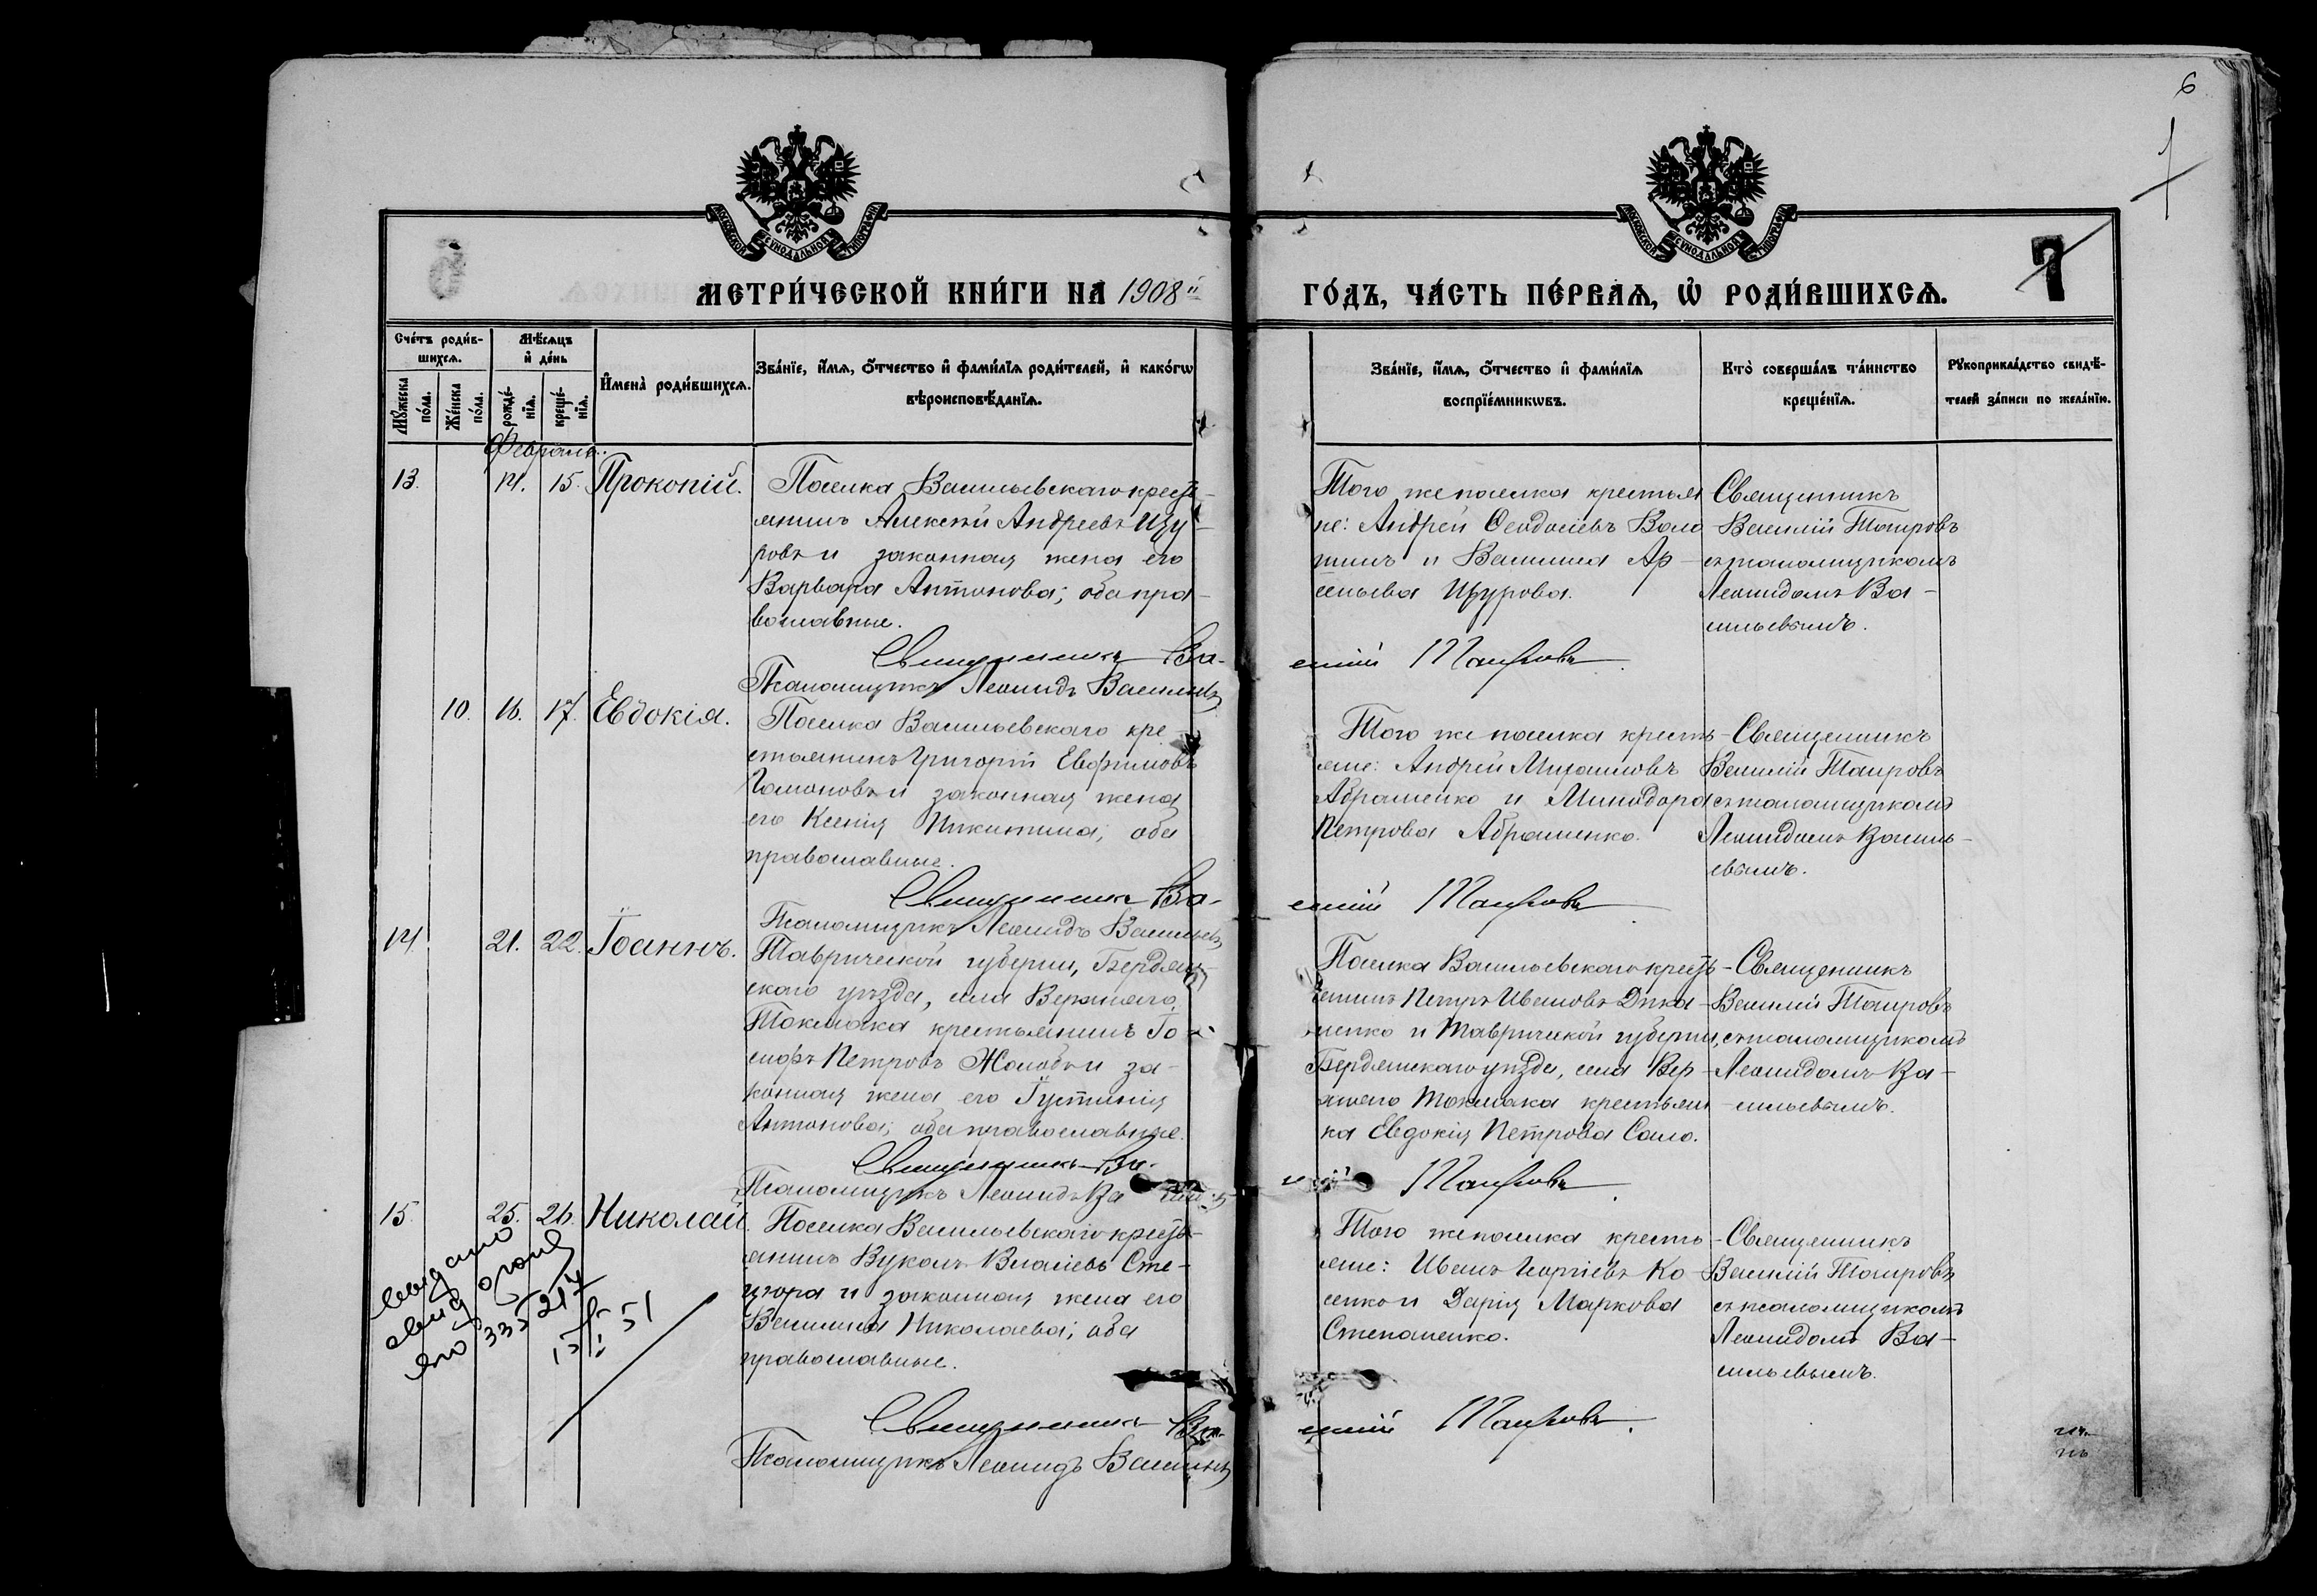 6
7
МЕТРИ́ЧЕСКОЙ КНИ́ГИ НА 1908й ГО́ДЪ, ЧА́СТЬ ПЕ́РВАѦ, Ѡ РОДИ́ВШИХСѦ.
Сче́тъ роди́в-
шихсѧ.
Мꙋжеска по́ла.
Же́нска по́ла.
Мѣ́сѧцъ
и де́нь
рожде́-
нїѧ.
креще́-
нїѧ.
И҆мена̀ роди́вшихсѧ.
Зва́нїе, и҆́мѧ, о҆́тчество и҆ фами́лїѧ роди́телей, и҆ како́гѡ
вѣроисповѣ́данїѧ.
Зва́нїе, и҆́мѧ, о҆́тчество и҆ фами́лїѧ
воспрїе́мникѡвъ.
Кто̀ соверша́лъ та́инство
креще́нїѧ.
Рꙋкоприкла́дство свидѣ́-
телей за́писи по жела́нїю.
Февраль.
13. 14. 15. Прокопій.
Поселка Васильевскаго кресть-
янинъ Алексѣй Андреевъ Щу-
ровъ и законная жена его
Варвара Антонова; оба пра-
вославные.
Того же поселка крестья
не: Андрей Ѳеодосіевъ Воло
шинъ и Васшина Ар-
сеньева Щурова.
Священникъ
Василій Таировъ
съ псаломщикомъ
Леонидомъ Ва-
сильевымъ.
Священникъ Ва-
силій Таировъ.
Псаломщикъ Леонидъ Васильевъ
10. 16. 17. Евдокія.
Поселка Васильевскаго кре-
стьянинъ Григорій Евфимовъ
Гомоновъ и законная жена
его Ксенія Никитина; оба
православные.
Того же поселка кресть-
яне: Андрей Михаиловъ
Абраменко и Минодора
Петрова Абраменко.
Священникъ
Василій Таировъ
съ псаломщикомъ
Леонидомъ Василь-
евымъ.
Священникъ Ва-
силій Таировъ.
Псаломщикъ Леонидъ Васильевъ
14. 21. 22. Іоаннъ.
Таврической губерніи, Бердян-
скаго уѣзда, села Верхняго
Токмака крестьянинъ Іо-
сифъ Петровъ Жолобъ и за-
конная жена его Іустинія
Антонова; оба православные.
Поселка Васильевскаго кресть-
янинъ Петръ Ивановъ Дика-
ненко и Таврической губерніи,
Бердянскаго уѣзда, села Вер-
хняго Токмака крестьян-
ка Евдокія Петрова Сало.
Священникъ
Василій Таировъ
съ псаломщикомъ
Леонидомъ Ва-
сильевымъ.
Священникъ Ва-
силій Таировъ.
Псаломщикъ Леонидъ Ва
15. 25. 26. Николай.
Поселка Васильевскаго кресть-
янинъ Вуколъ Власіевъ Сте-
цюра и законная жена его
Николаева; оба
православные.
Того же поселка кресть-
яне: Иванъ Георгіевъ Ко-
сенко и Дарія Маркова
Степаненко.
Священникъ
Василій Таировъ
съ псаломщикомъ
Леонидомъ Ва-
сильевымъ.
Священникъ Ва-
силій Таировъ.
Псаломщикъ Леонидъ Васильевъ